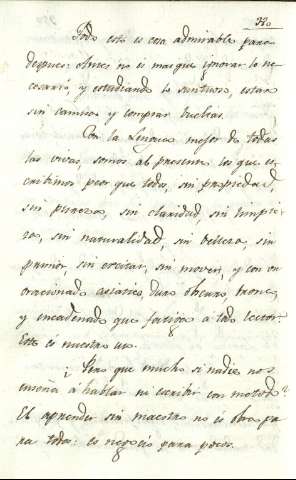 320
Todo esto es cosa admirable para
despues: antes no es mas que ignorar lo ne-
cesario, y estudiando lo suntuoso, estar
sin camisa y comprar vueltas.
Con la Lengua mejor de todas
las vivas, somos al presente, los que es-
cribimos peor que todos, sin propiedad,
sin pureza, sin claridad, sin limpie-
za, sin naturalidad, sin belleza, sin
primor, sin excitar, sin mover, y con un
oracionado asiatico duro obscuro, bronco,
y encadenado que fatiga a todo lector.
Este es nuestro uso.
¿ Pero que mucho si nadie nos
enseña á hablar ni escribir con metodo?
El aprender sin maestro no es obra pa-
ra todos: es negocio para pocos.